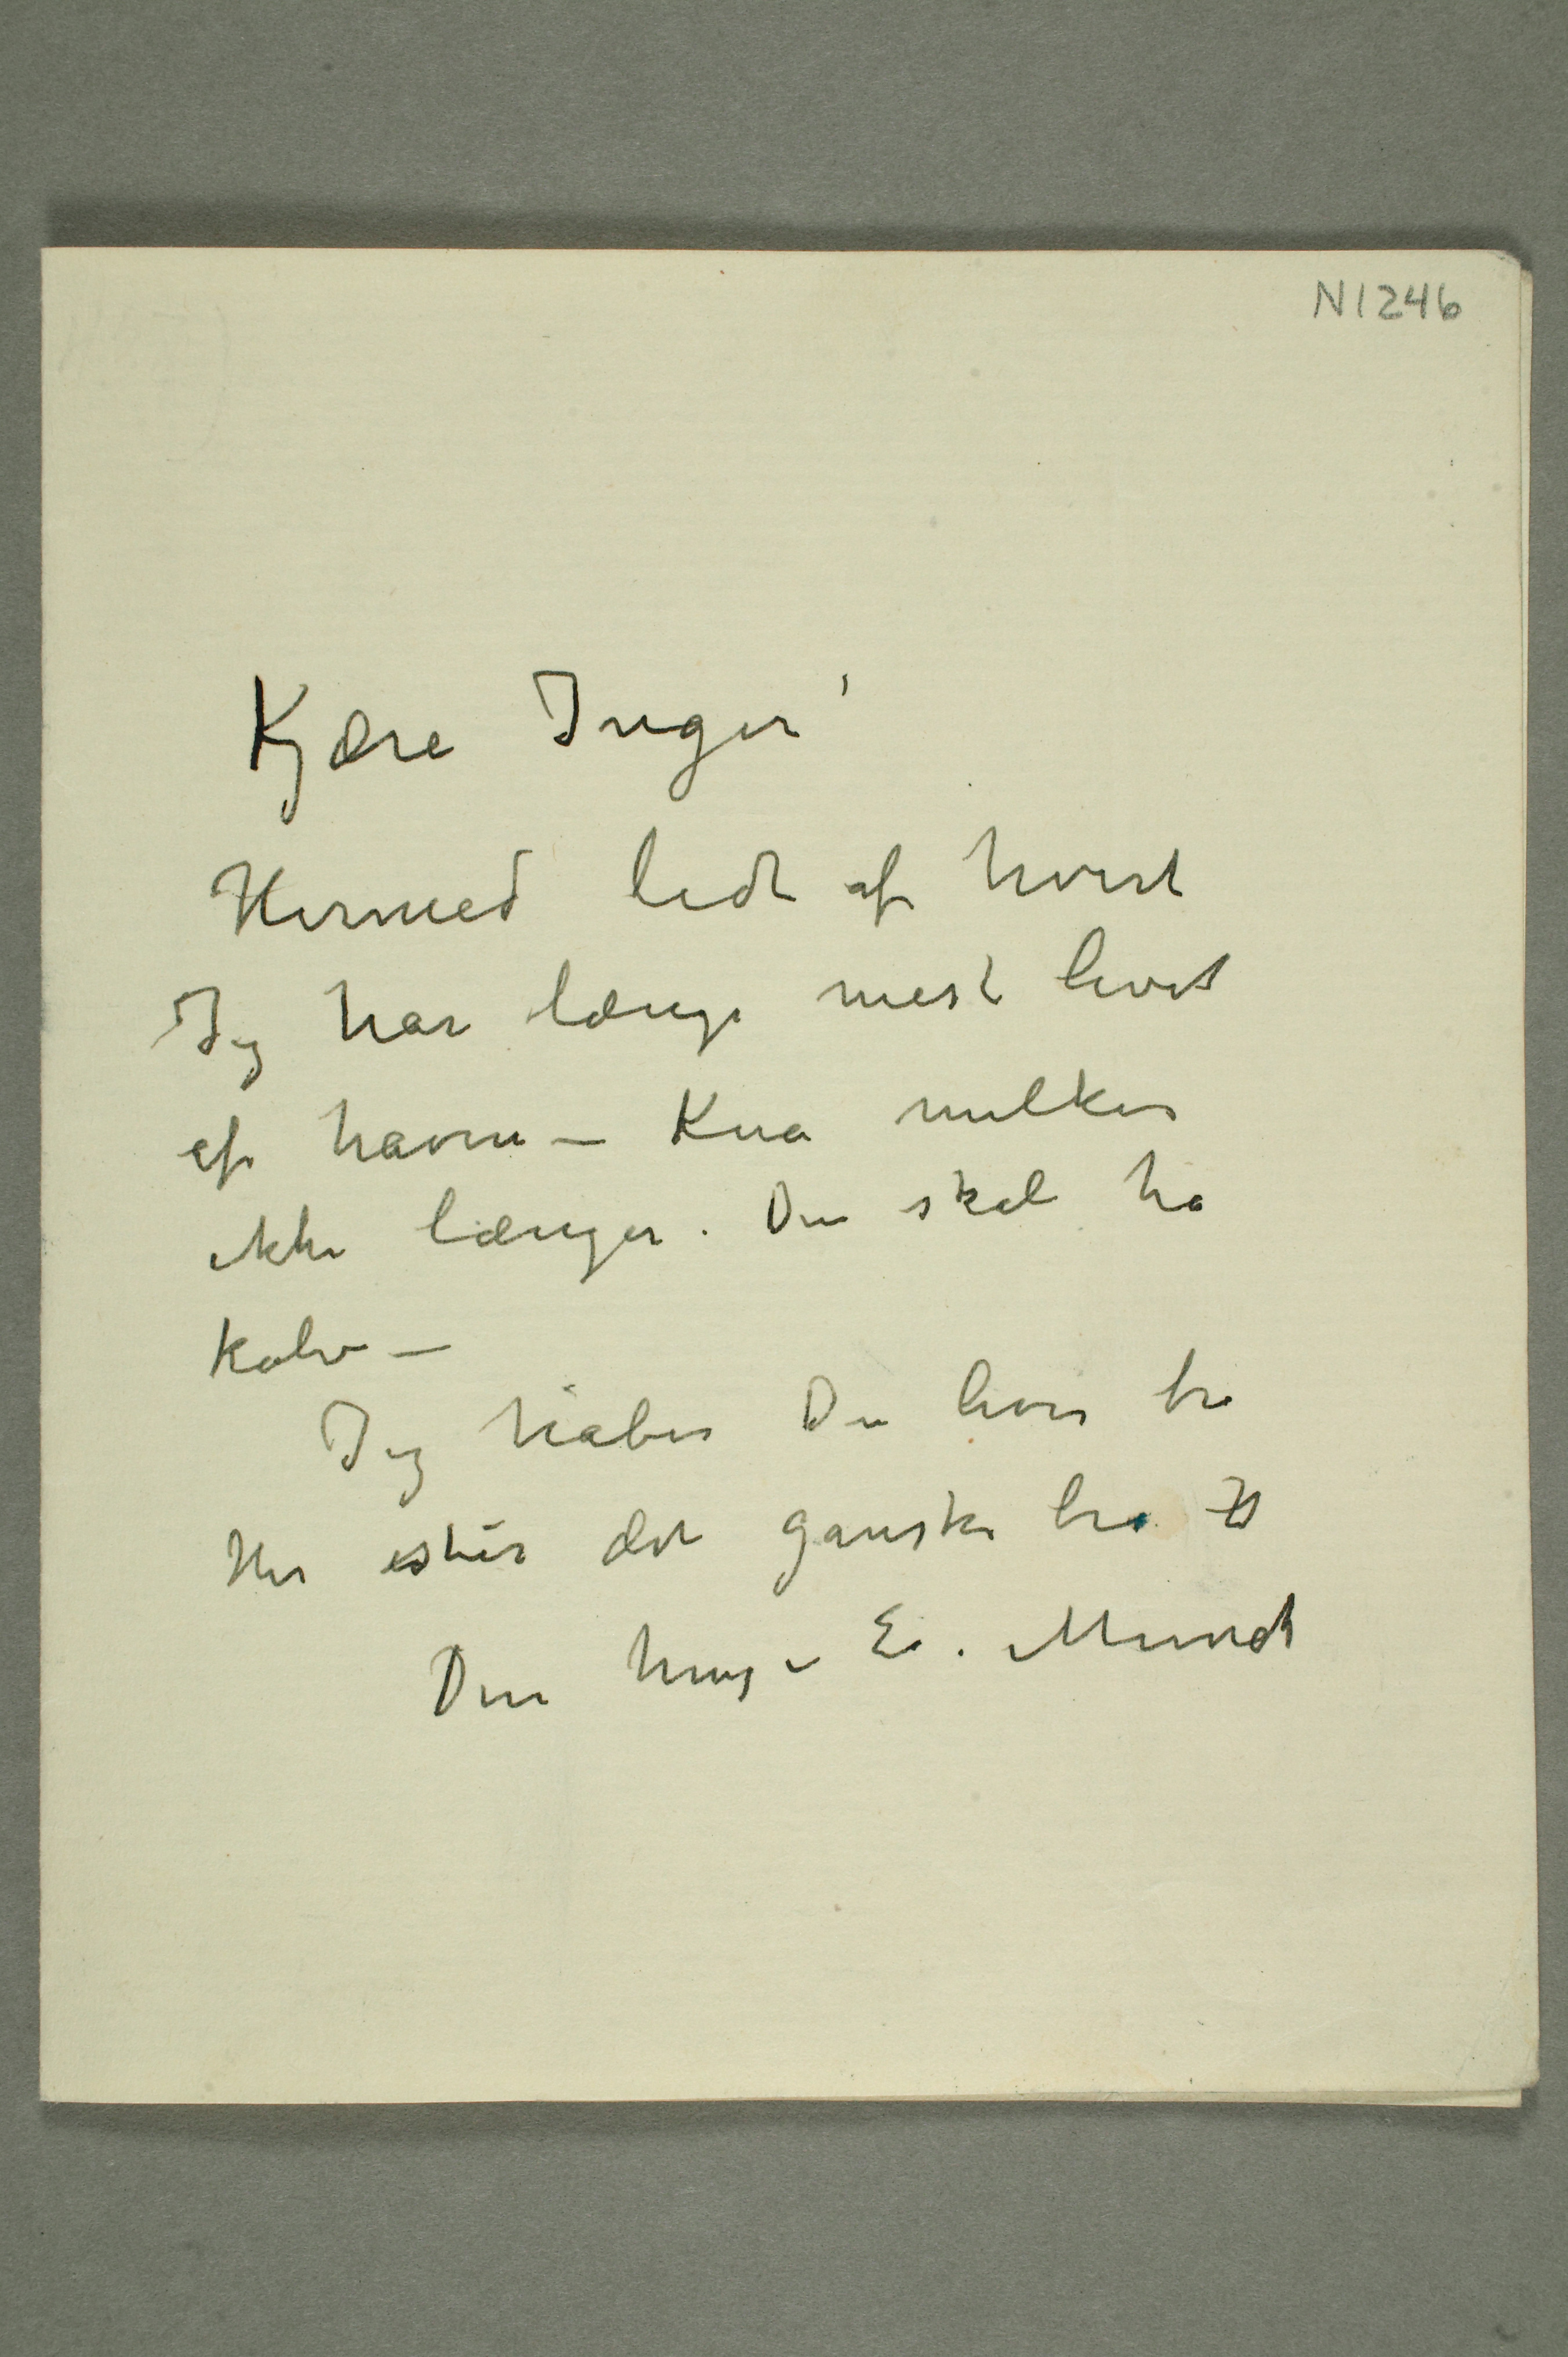 N1246
Kjære Inger!
Hermed lidt af hvert
Jeg har længe mest levet
af havren – Kua melker
ikke længer. Den skal ha
kalv –
Jeg håber Du lever bra
Her står det ganske bra
Din heng. E. Munch